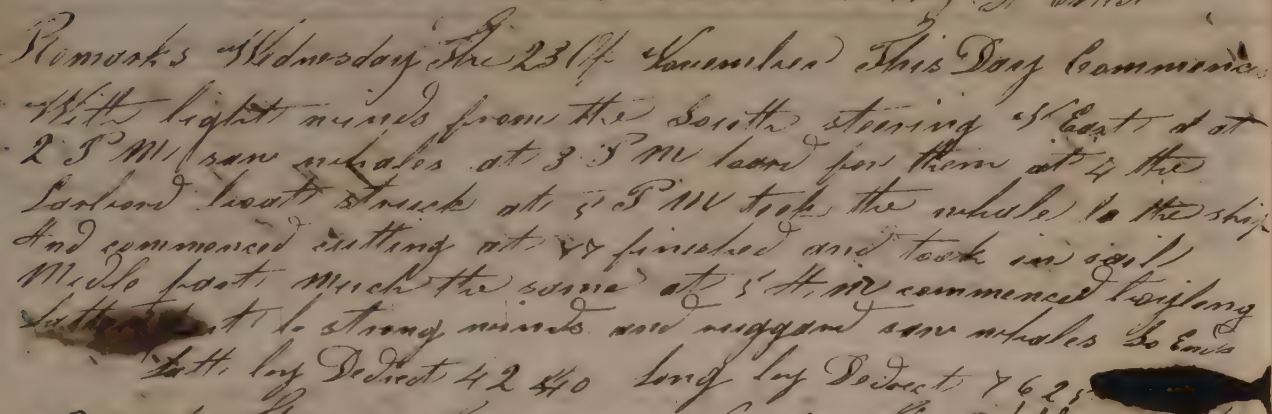 Remarks Wednesday The 23 Of November This Day Commenc
With light winds from the South steering N East d at
2 P M saw whales at 3 P M loard for them at 4 the
Larbord boat struck at 5 P M took the whale to the ship
And commenced cutting at 7 finished and took in sail
Midle part Much the same at 5 A, M commenced boyling
Latter part strong winds and ruggard saw whales So Ends
Latt by Deduct 42 40 Long by Deduct 76 25